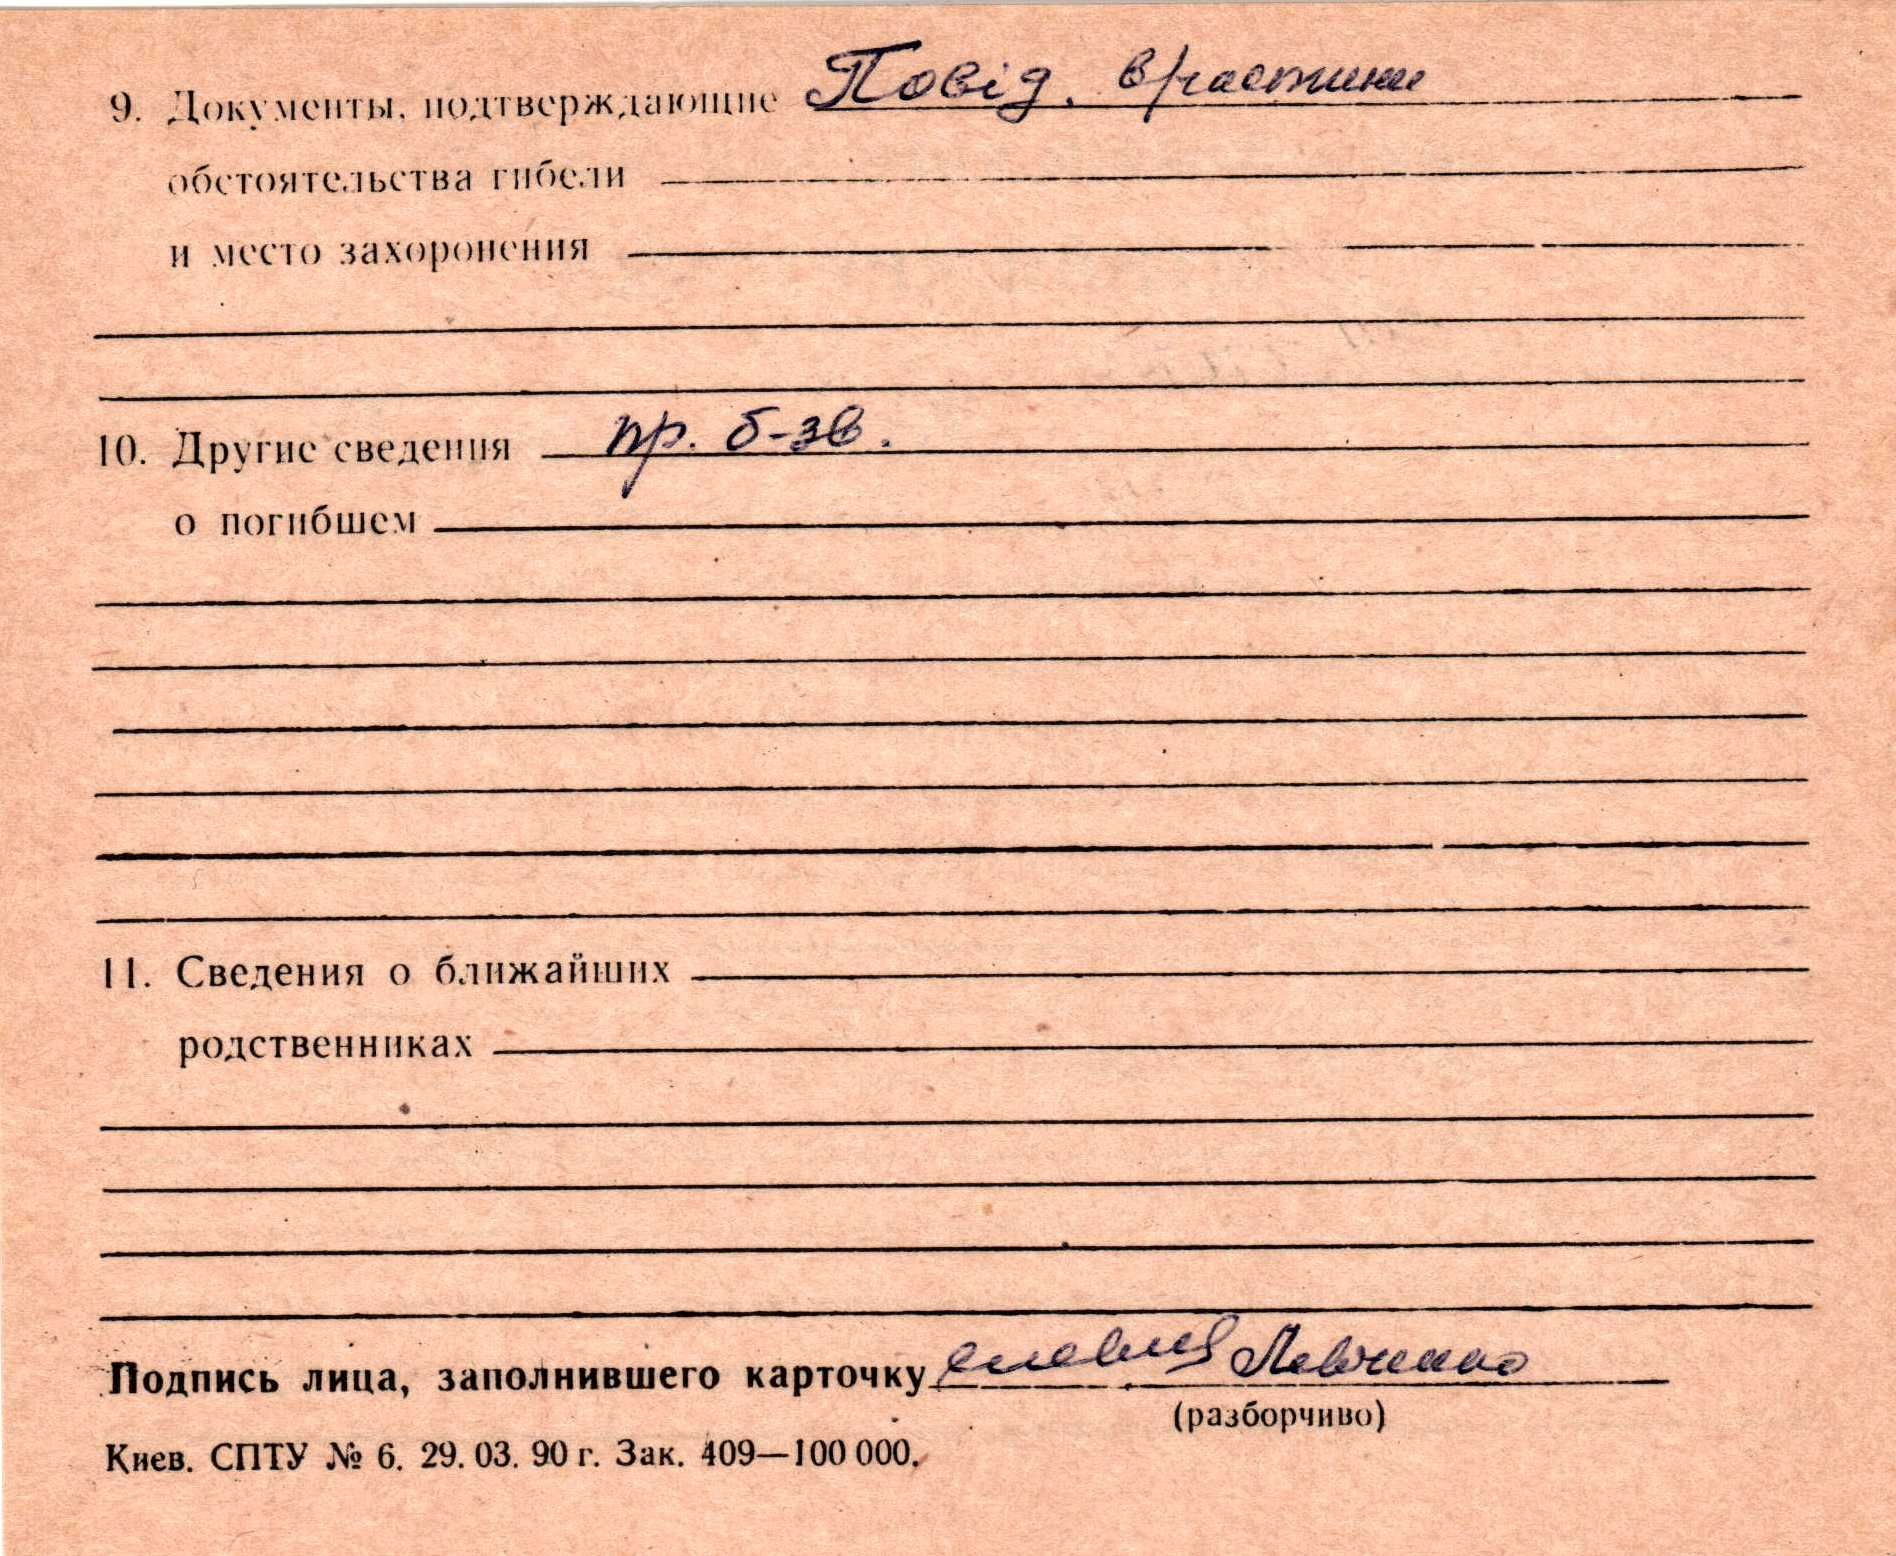 9. Документы, подтверждающие Повід. в/частини
обстоятельства гибели
и место захоронения
10. Другие сведения пр. б-зв.
о погибшем
11. Сведения о ближайших
родственниках
Подпись лица, заполнившего карточку Левченко
(разборчиво)
Киев. СПТУ № 6. 29. 03. 90 г. Зак. 409—100 000.